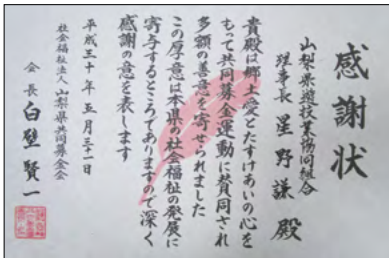 感謝状
山梨県遊技業協同組合
理事長 星野謙 殿
貴殿は郷土愛とたすけあいの心を
もって共同募金運動に賛同され
多額の善意を寄せられました
この厚意は本県の社会福祉の発展に
寄与するところでありますので深く
感謝の意を表します
平成三十年五月三十一日
社会福祉法人 山梨県共同募金会
会長 白壁賢一